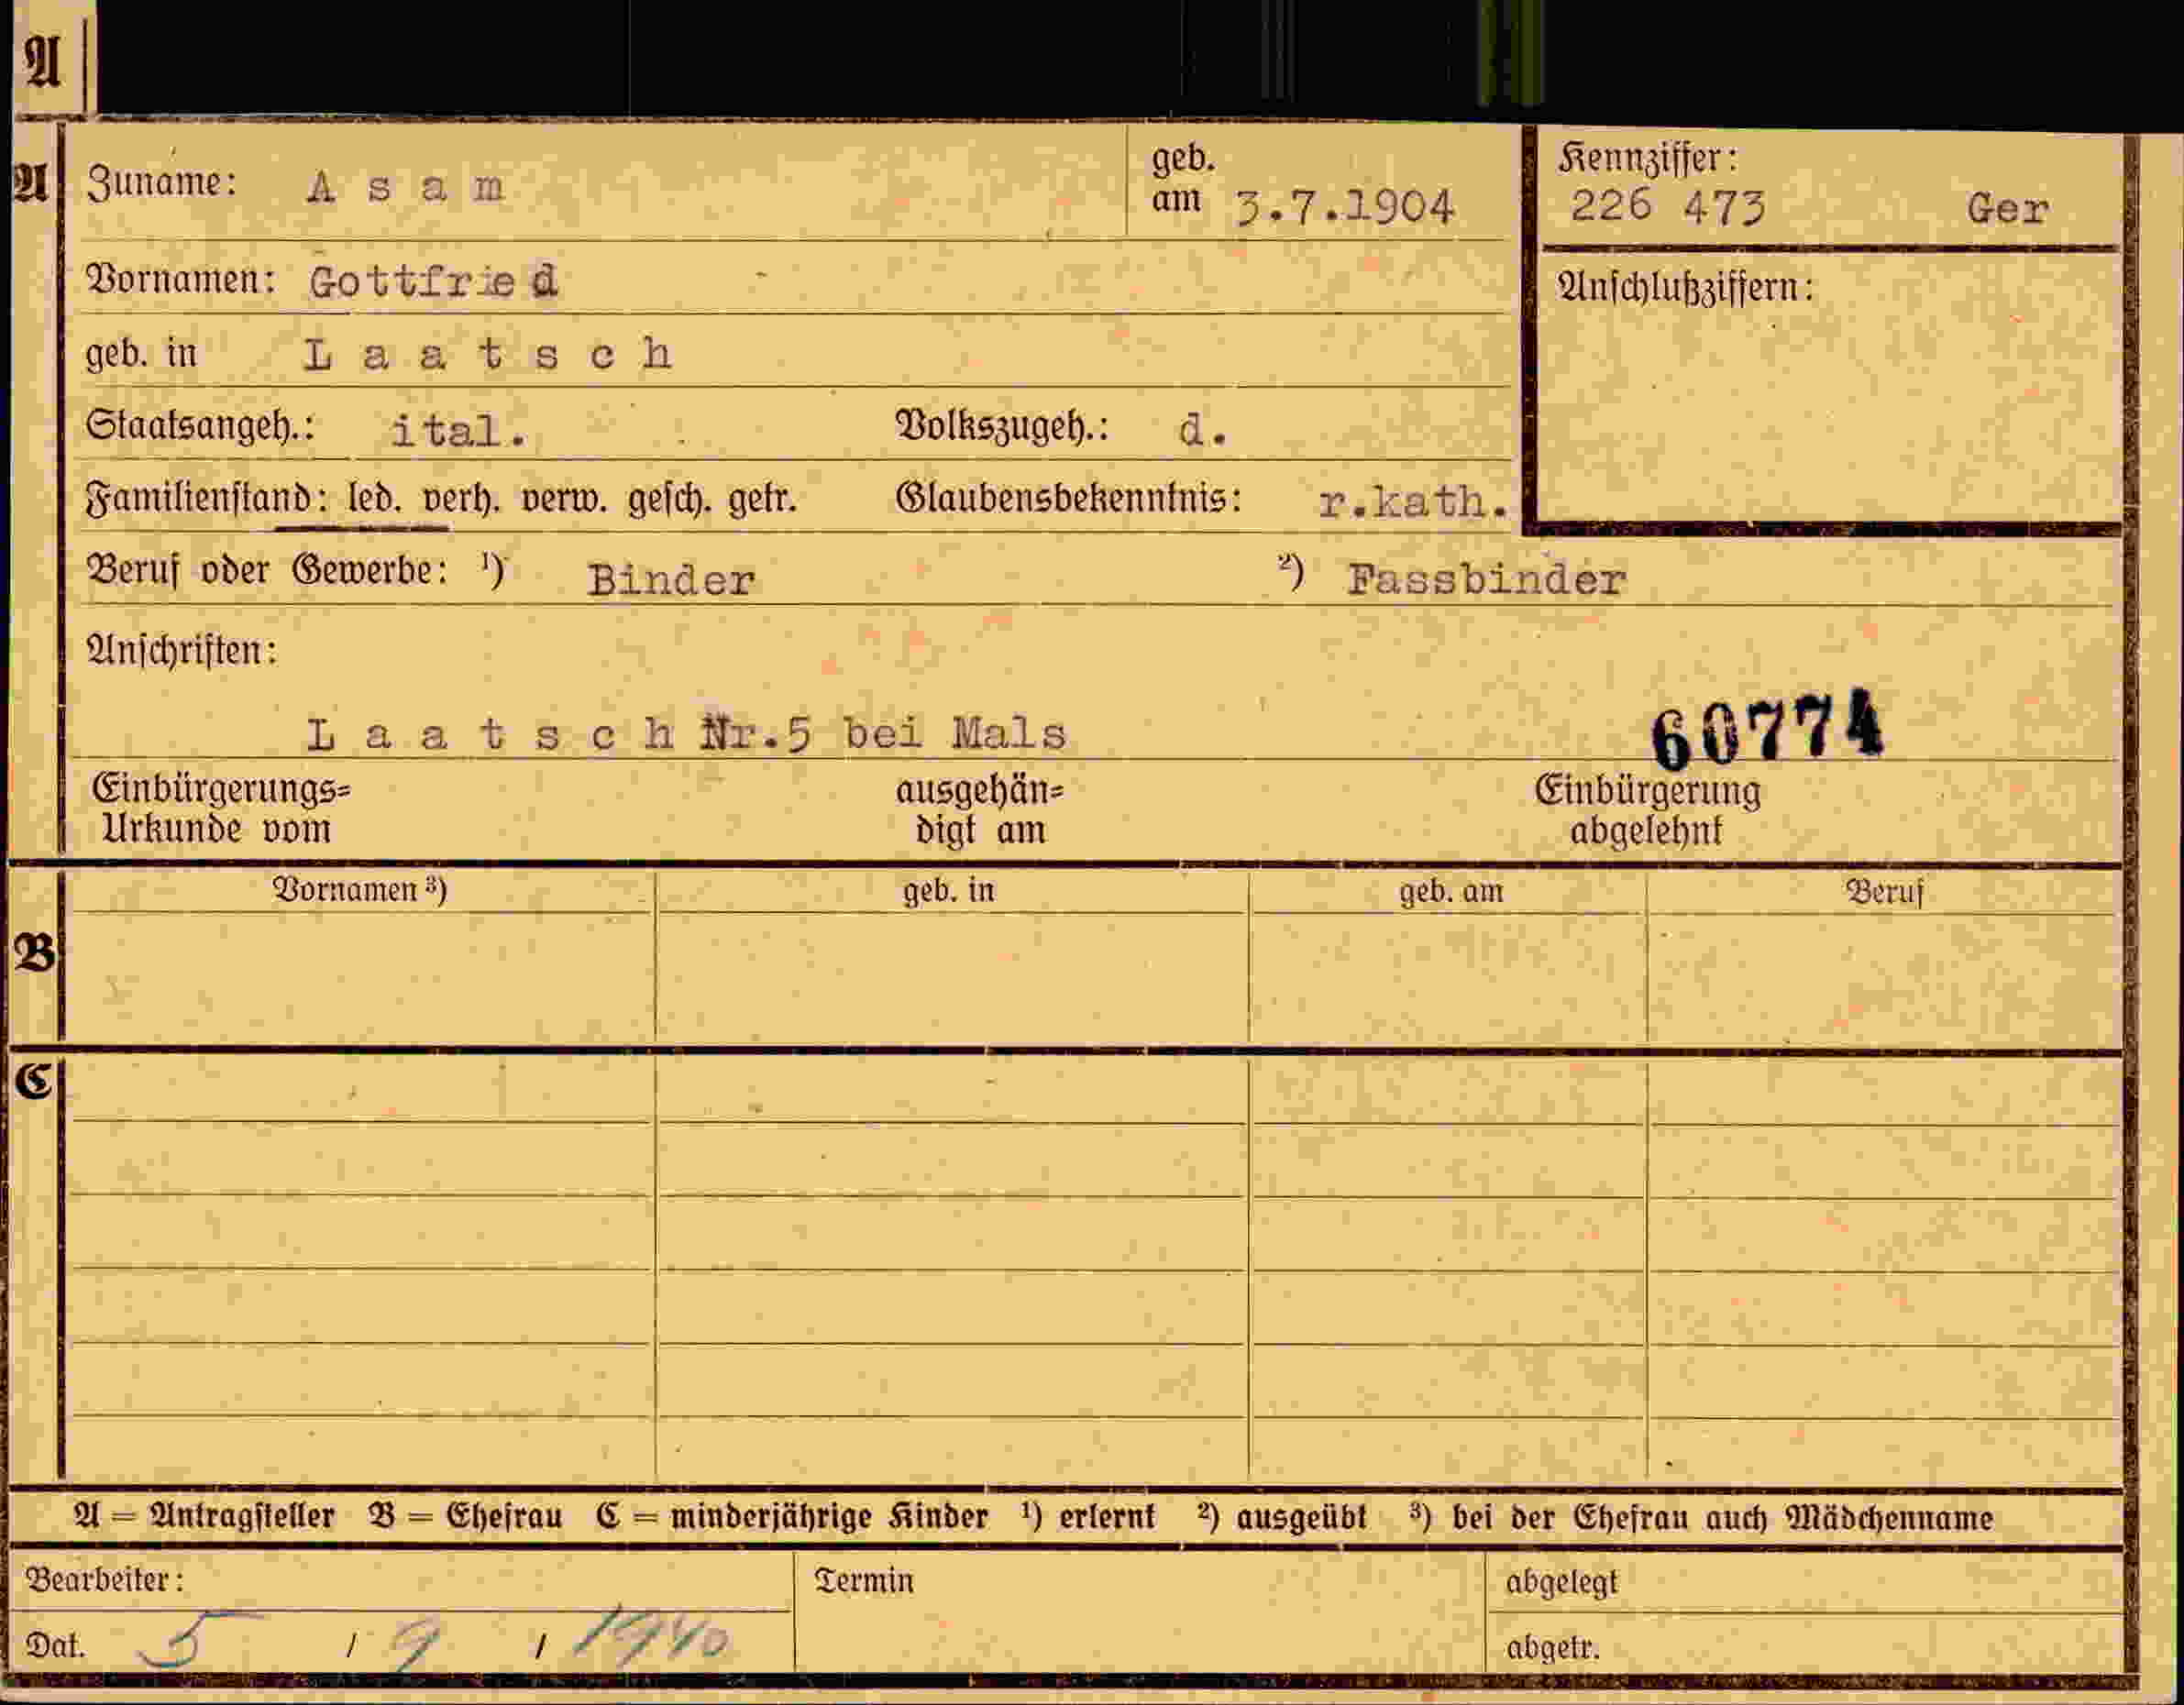 A
A Zuname: A s a m geb. am 3.7.1904 Kennziffer: 226 473 Ger
Vornamen: Gottfried Anschlußziffern:
geb. in L a a t s c h
Staatsangeh.: ital. Volkszugeh.: d.
Familienstand: led. verh. verw. gesch. getr. Glaubensbekenntnis: r.kath.
Beruf oder Gewerbe: ¹) Binder ²) Fassbinder
Anschriften:
L a a t s c h Nr.5 bei Mals 60774
Einbürgerungs= ausgehän= Einbürgerung
Urkunde vom digt am abgelehnt
Vornamen ³) geb. in geb. am Beruf
B
C
A = Antragsteller B = Ehefrau C = minderjährige Kinder ¹) erlernt ²) ausgeübt ³) bei der Ehefrau auch Mädchenname
Bearbeiter: Termin abgelegt
Dat. 5 / 9 / 1940 abgetr.